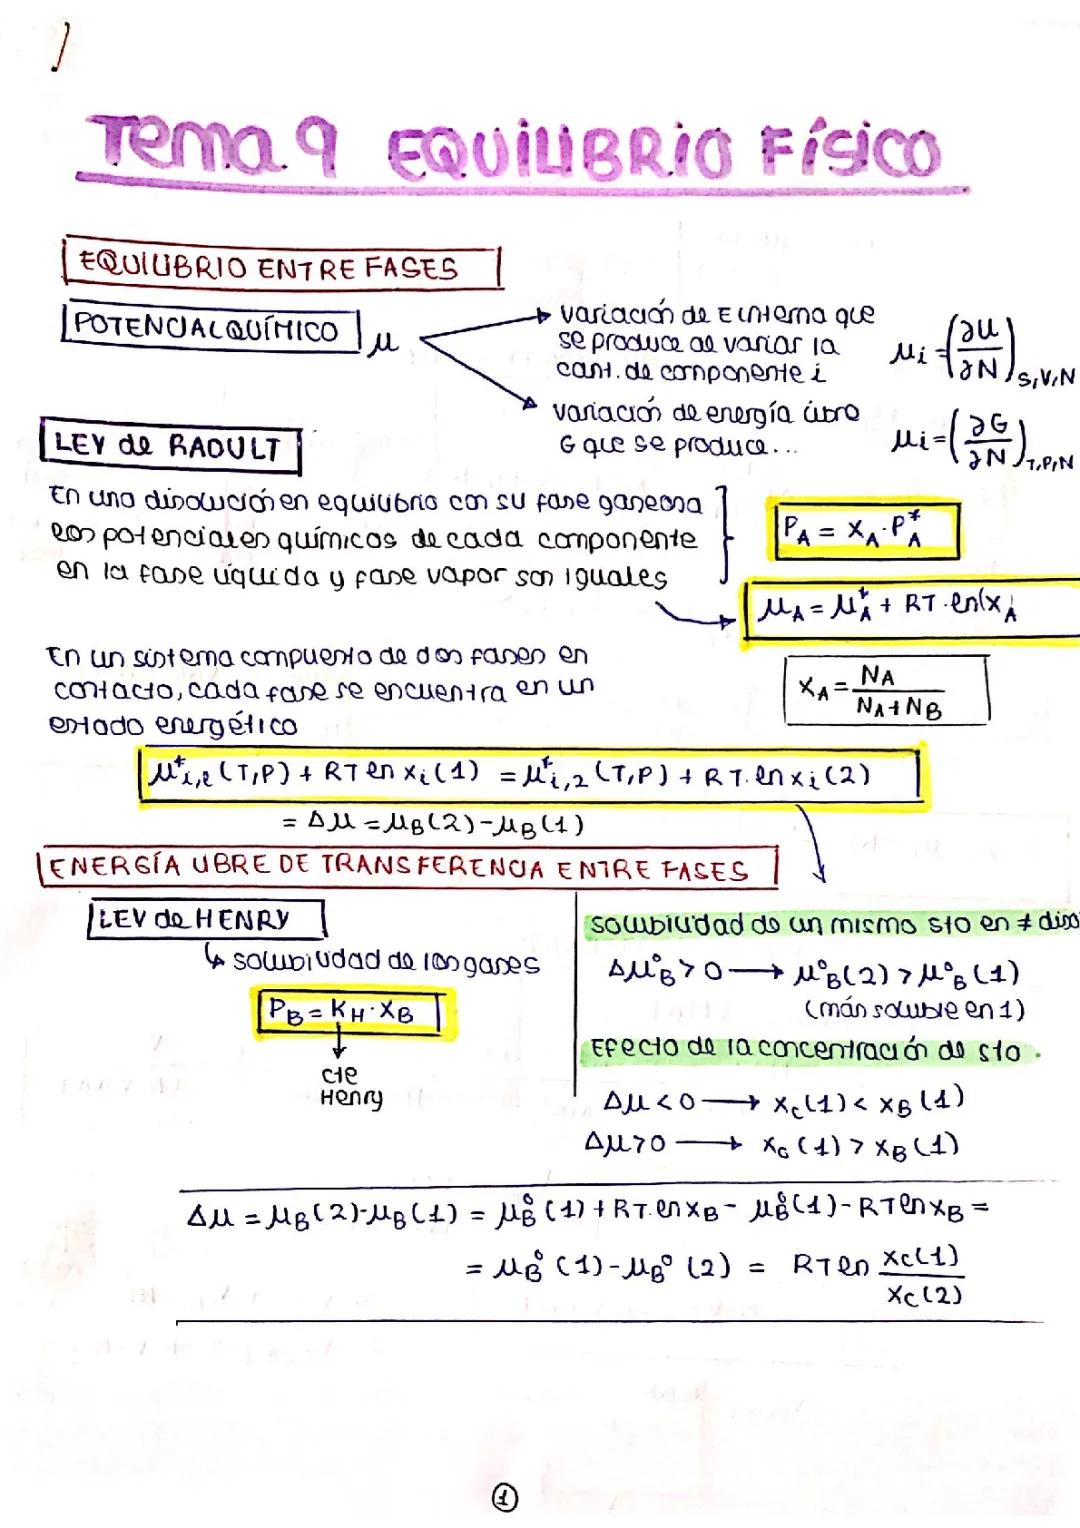 Tema 9 EQUILIBRIO FÍSICO
EQUILIBRIO ENTRE FASES
POTENCIAL QUÍMICO μ
variación de E interna que
se produce al variar la
cant. de componente i
μi = (∂U/∂N)S,V,N
variación de energía libre
G que se produce...
μi = (∂G/∂N)T,P,N
LEY de RAOULT
En una disolución en equilibrio con su fase gaseosa
los potenciales químicos de cada componente
en la fase líquida y fase vapor son iguales
PA = XA · P*A
μA = μ*A + RT · ln(xA
En un sistema compuesto de dos fases en
contacto, cada fase se encuentra en un
estado energético
XA = NA/(NA + NB)
μ*i,l (T,P) + RT ln xi (1) = μ*i,2 (T,P) + RT. ln xi (2)
= Δμ = μB(2) - μB(1)
ENERGÍA LIBRE DE TRANSFERENCIA ENTRE FASES
LEY de HENRY
↳ solubilidad de los gases
PB = KH · XB
cte
Henry
Solubilidad de un mismo sto en ≠ diso
Δμ°B > 0 → μ°B(2) > μ°B(1)
(más soluble en 1)
Efecto de la concentración de sto.
Δμ < 0 → xc(1) < xB(1)
Δμ > 0 → xc(1) > xB(1)
Δμ = μB(2) - μB(1) = μ°B(1) + RT. ln xB - μ°B(1) - RT ln xB =
= μB°(1) - μB°(2) = RT ln xc(1)/xc(2)
1